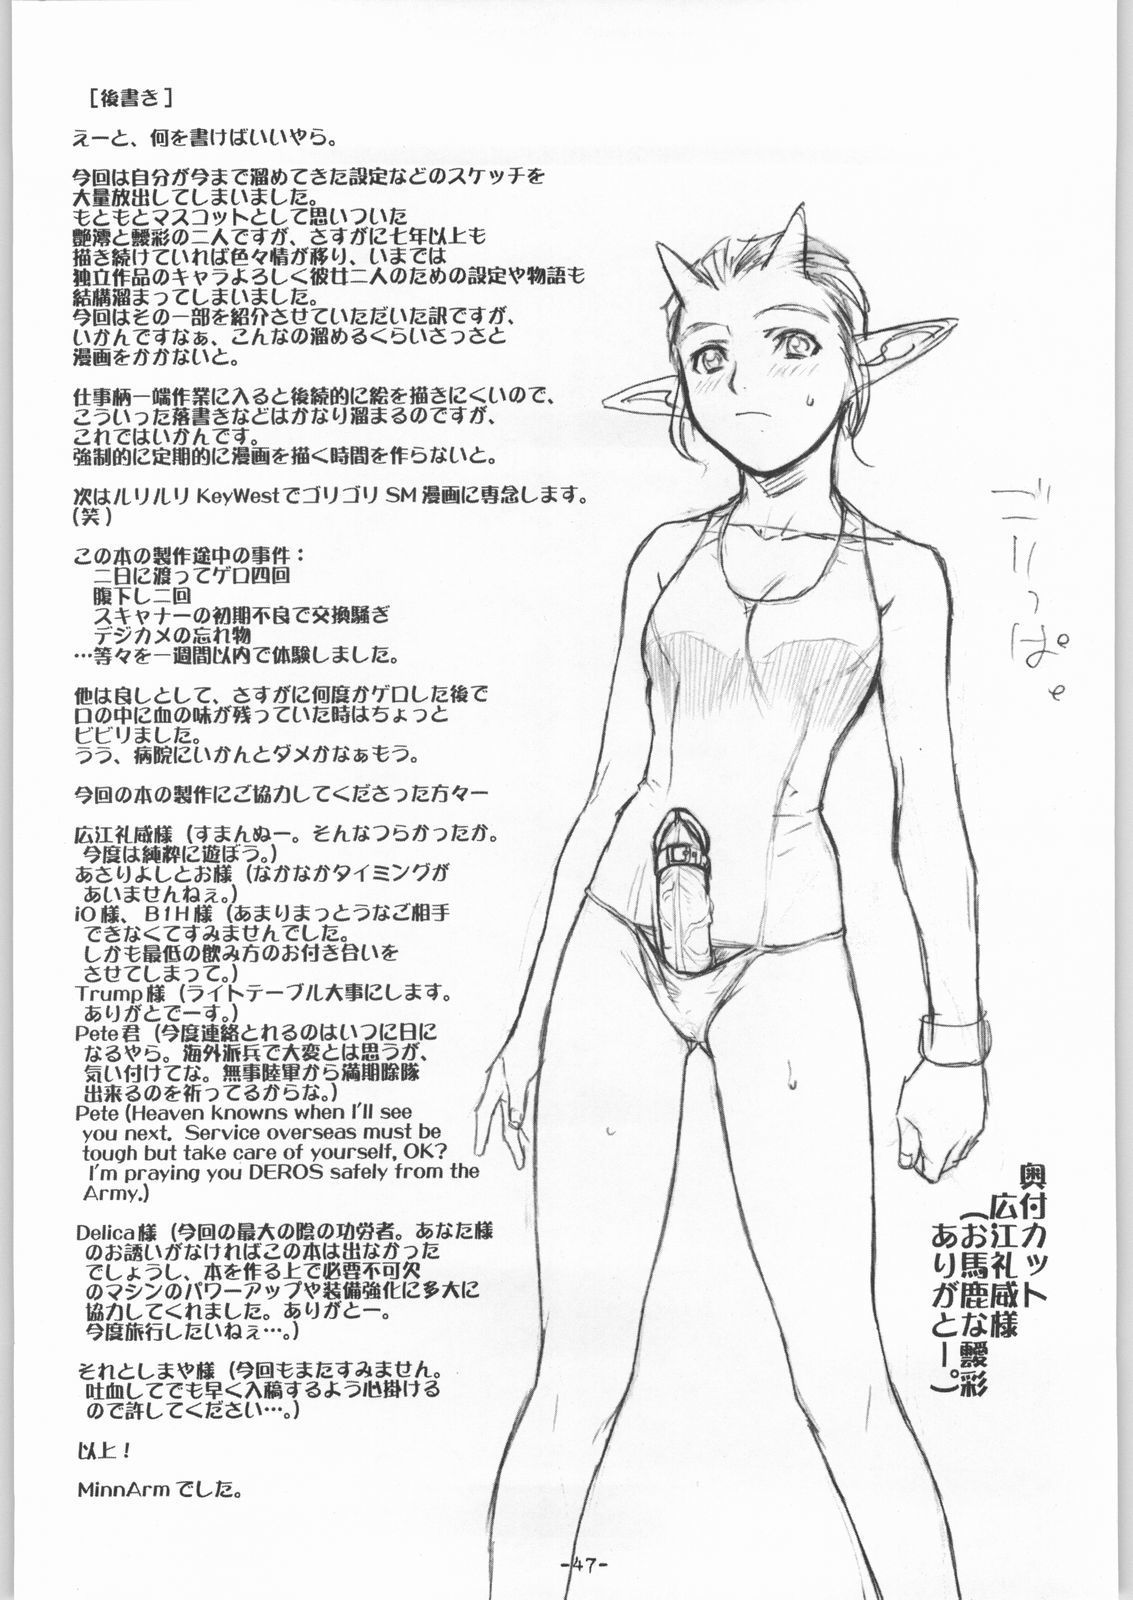 [後書き]
えーと、何を書けばいいやら。
今回は自分が今まで溜めてきた設定などのスケッチを
大量放出してしまいました。
もともとマスコットとして思いついた
艶澪と靉彩の二人ですが、さすがに七年以上も
描き続けていれば色々情が移り、いまでは
独立作品のキャラよろしく彼女二人のための設定や物語も
結構溜まってしまいました。
今回はその一部を紹介させていただいた訳ですが、
いかんですなぁ、こんなの溜めるくらいさっさと
漫画をかかないと。
仕事柄一端作業に入ると後続的に絵を描きにくいので、
こういった落書きなどはかなり溜まるのですが、
これではいかんです。
強制的に定期的に漫画を描く時間を作らないと。
次はルリルリKeyWestでゴリゴリSM漫画に専念します。
(笑)
この本の製作途中の事件：
二日に渡ってゲロ四回
腹下し二回
スキャナーの初期不良で交換騒ぎ
デジカメの忘れ物
…等々を一週間以内で体験しました。
他は良しとして、さすがに何度かゲロした後で
口の中に血の味が残っていた時はちょっと
ビビリました。
うう、病院にいかんとダメかなぁもう。
今回の本の製作にご協力してくださった方々ー
広江礼威様(すまんぬー。そんなつらかったか。
今度は純粋に遊ぼう。)
あさりよしとお様(なかなかタイミングが
あいませんねぇ。)
iO様、B1H様(あまりまっとうなご相手
できなくてすみませんでした。
しかも最低の飲み方のお付き合いを
させてしまって。)
Trump様(ライトテーブル大事にします。
ありがとでーす。)
Pete君(今度連絡とれるのはいつに日に
なるやら。海外派兵で大変とは思うが、
気い付けてな。無事陸軍から満期除隊
出来るのを祈ってるからな。)
Pete (Heaven knowns when I'll see
you next. Service overseas must be
tough but take care of yourself, OK?
I'm praying you DEROS safely from the
Army.)
Delica様(今回の最大の陰の功労者。あなた様
のお誘いがなければこの本は出なかった
でしょうし、本を作る上で必要不可欠
のマシンのパワーアップや装備強化に多大に
協力してくれました。ありがとー。
今度旅行したいねぇ…。)
それとしまや様(今回もまたすみません。
吐血してでも早く入稿するよう心掛ける
ので許してください…。)
以上！
MinnArmでした。
ごりっぱ。
奥付カット
広江礼威様
(お馬鹿な靉彩
ありがとー。)
-47-